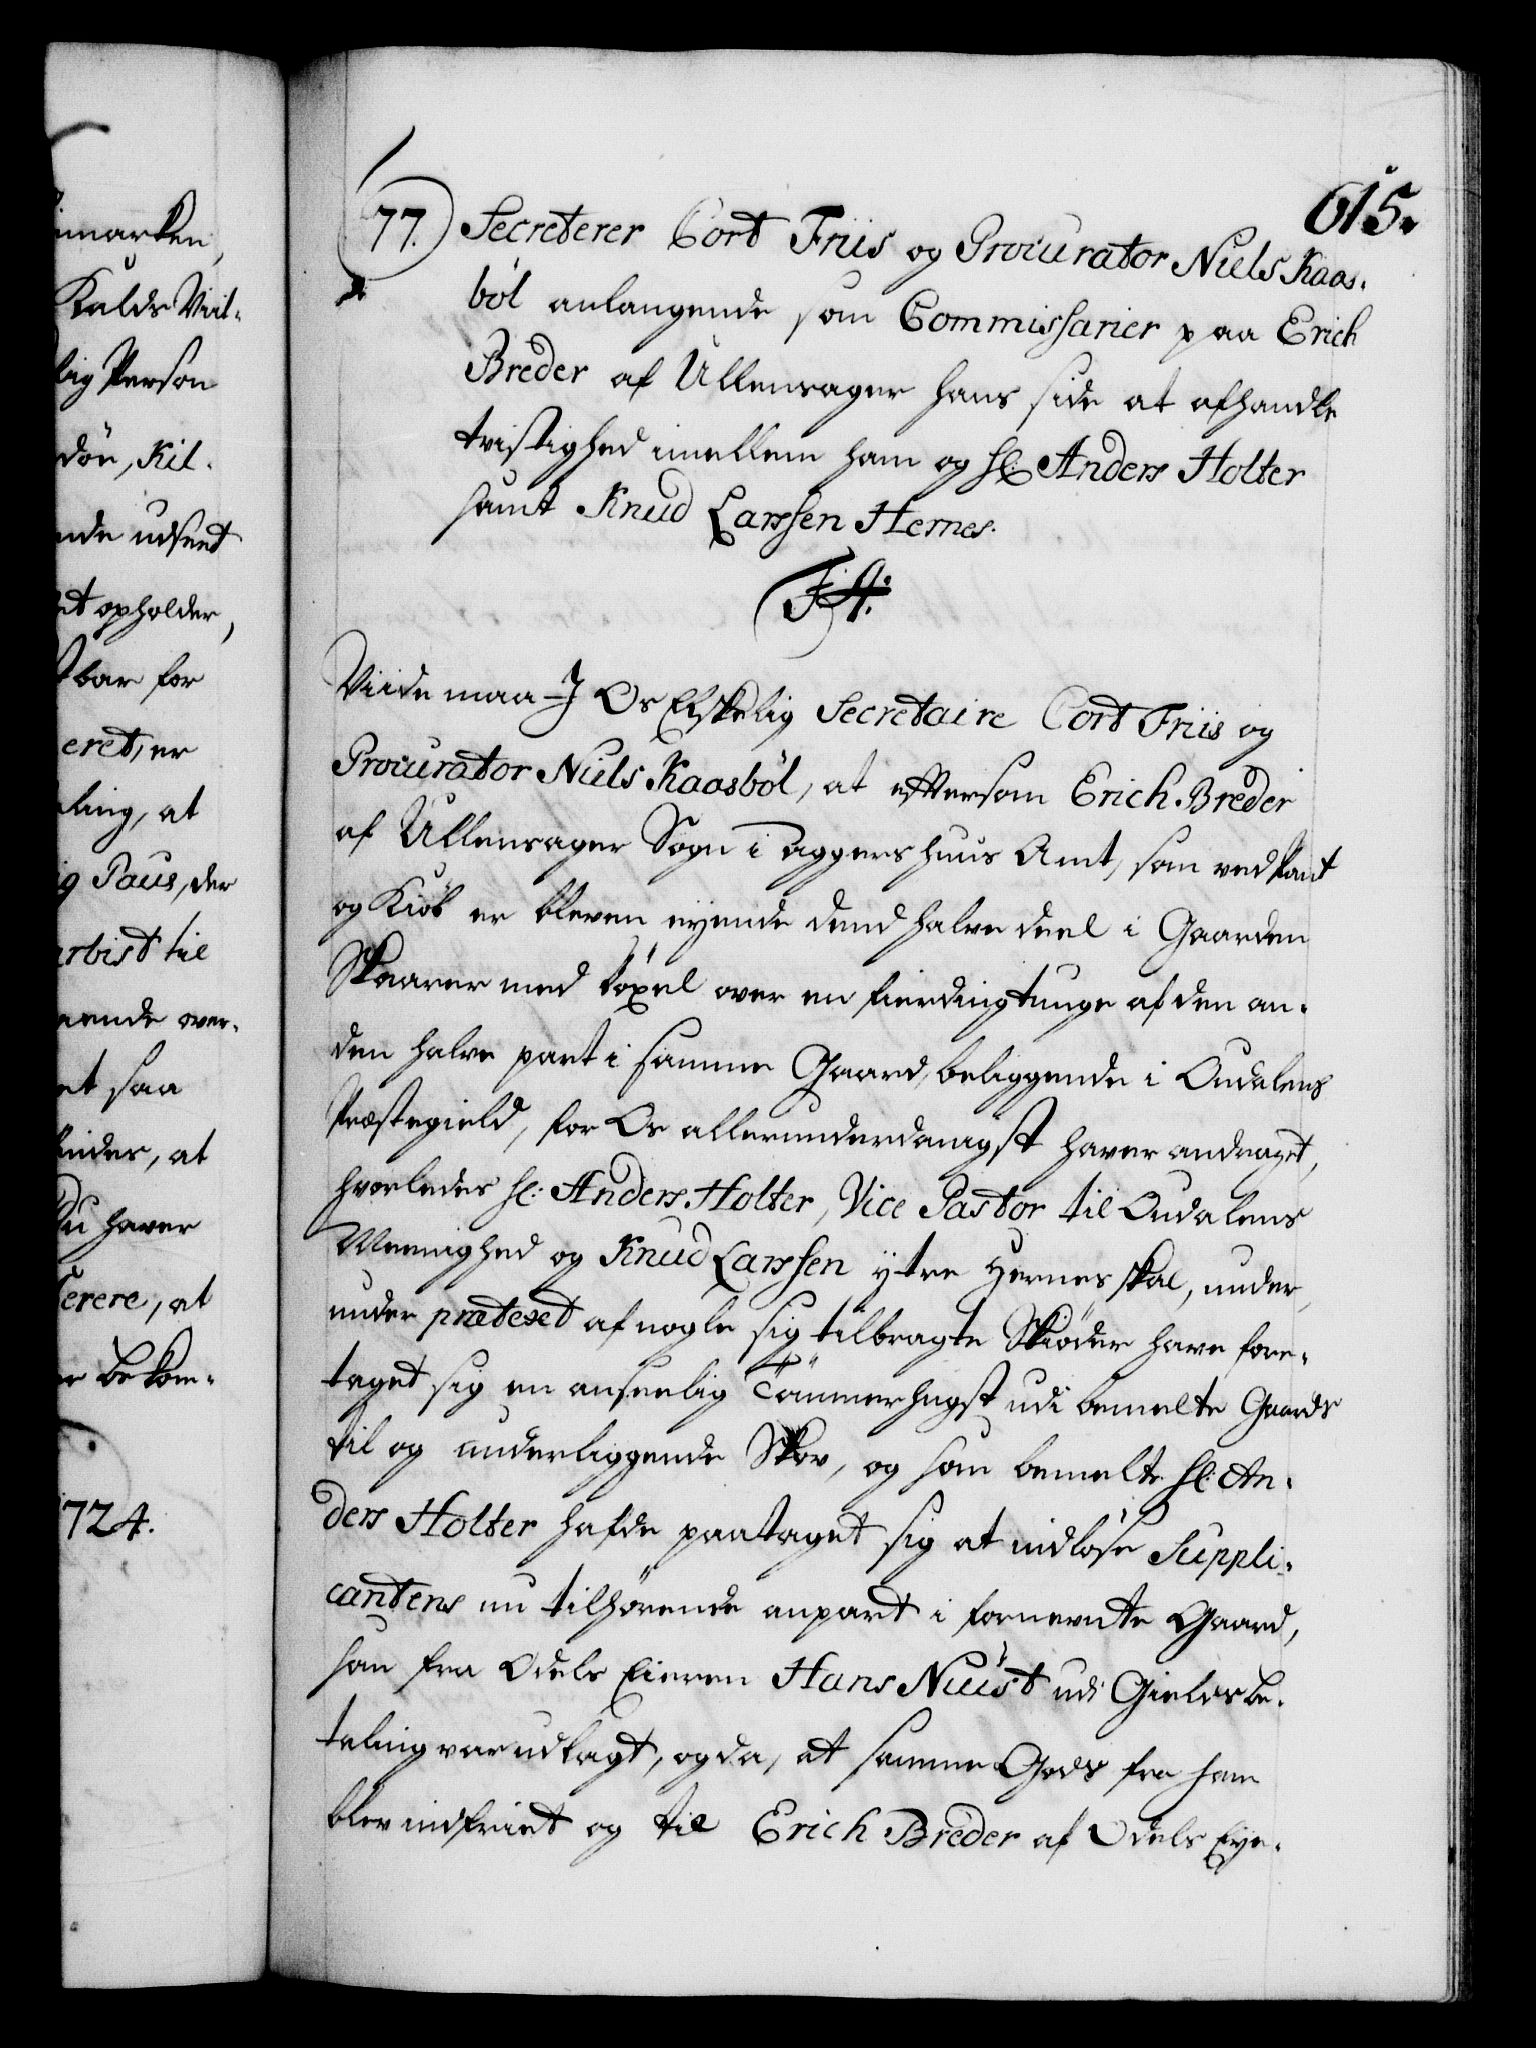 imarken,
Kalds Viil-
lig Person
döe, Kil-
nde udseet
et opholder,
bar for
eret, er
ling, at
ig Paus, der
rbist til
eende over-
et saa
finder, at
Du haver
erere, at
er bekom-
1724.
615.
77. Secreterer Cort Friis og Procurator Niels Kaas-
böl anlangende som Commissarier paa Erich
Breder af Ullensager hans side at afhandle
tvistighed imellem ham og hl: Anders Holter
samt Knud Larssen Hernes.
F. 4.
Viide maa I Os Elskelig Secretaire Cort Friis og
Procurator Niels Kaasböl, at eftersom Erich Breder
af Ullensager Sogn i Aggershuus Amt, som ved Pant
og Kiöb er bleven eyende dend halve deel i Gaarden
Skaarer medböxel over en fierdingtunge af den an-
den halve part i samme Gaard, beliggende i Oudalens
Præstegield, for Os allerunderdanigst haver andraget,
hvorledes hl: Anders Holter, Vice Pastor til Oudalens
Meenighed og Knud Larssen ytre Hernes skal, under,
under prætext af nogle sig tilbragte Skiöder have fore-
taget sig en anseelig Tömmerhugst udi bemelte Gaards
til og underliggende Skov, og som bemelte hl: An-
ders Holter hafde paataget sig at indlöse Suppli-
cantens nu tilhörende anpart i fornevnte Gaard,
som fra Odels Eieren Hans Nuust udi Gields be-
taling var udlagt, og da, at samme Gods fra ham
blev indfriet og til Erich Breder af Odels Eye-